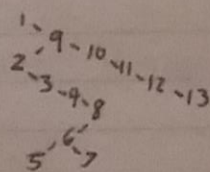 1
9 - 10 - 11 - 12 - 13
2
3 - 9 - 8
6
5 7